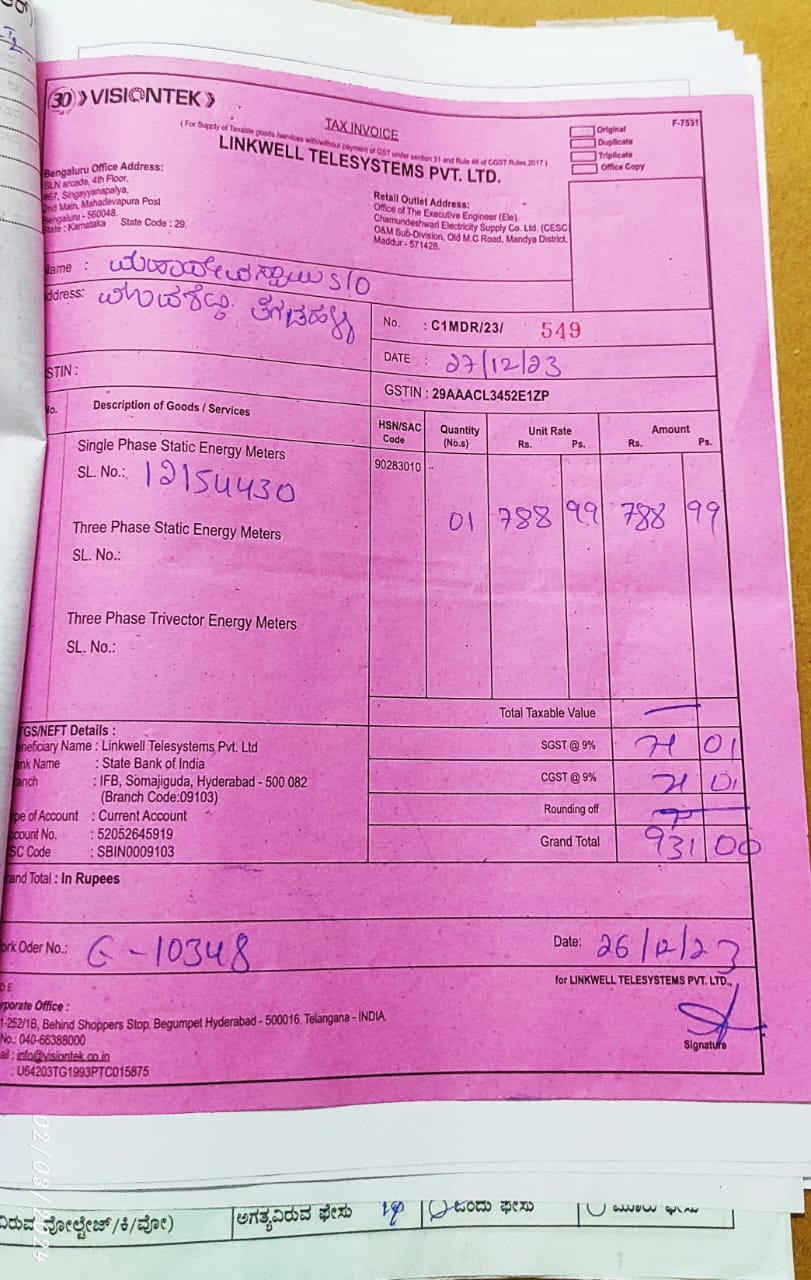 30 VISIONTEK
TAX INVOICE
(For Supply of Taxable goods /services with/without payment of GST under section 31 and Rule 46 of CGST Rules.2017)
LINKWELL TELESYSTEMS PVT. LTD.
Original
Duplicate
Triplicate
Office Copy
F-7531
Bengaluru Office Address:
SLN arcade, 4th Floor,
#67, Singayyanapalya,
2nd Main, Mahadevapura Post
Bengaluru - 560048.
State : Karnataka State Code : 29.
Retail Outlet Address:
Office of The Executive Engineer (Ele),
Chamundeshwari Electricity Supply Co. Ltd. (CESC
O&M Sub-Division, Old M.C Road, Mandya District,
Maddur - 571428.
Name : ಮಹಾದೇವಸ್ವಾಮಿ S/O
ddress:
No. : C1MDR/23/ 549
DATE : 27/12/23
STIN :
GSTIN : 29AAACL3452E1ZP
No. Description of Goods / Services HSN/SAC Code Quantity (No.s) Unit Rate Rs. Ps. Amount Rs. Ps.
Single Phase Static Energy Meters 90283010
SL. No.: 12154430 01 788 99 788 99
Three Phase Static Energy Meters
SL. No.:
Three Phase Trivector Energy Meters
SL. No.:
Total Taxable Value
SGST @ 9% 71 01
CGST @ 9% 71 01
Rounding off
Grand Total 931 00
TGS/NEFT Details :
neficiary Name : Linkwell Telesystems Pvt. Ltd
nk Name : State Bank of India
anch : IFB, Somajiguda, Hyderabad - 500 082
(Branch Code:09103)
pe of Account : Current Account
count No. : 52052645919
SC Code : SBIN0009103
rand Total : In Rupees
ork Oder No.: G-10348
Date: 26/12/23
for LINKWELL TELESYSTEMS PVT. LTD.,
Signature
rporate Office :
1-252/1B, Behind Shoppers Stop, Begumpet Hyderabad - 500016, Telangana - INDIA.
No.: 040-66388000
ail : info@visiontek.co.in
: U64203TG1993PTC015875
02/03/2024
ವಿರುವ ವೋಲ್ಟೇಜ್/ಕಿ/ವೋ) ಅಗತ್ಯವಿರುವ ಫೇಸು 1φ ಒಂದು ಫೇಸು ಮೂರು ಫೇಸು